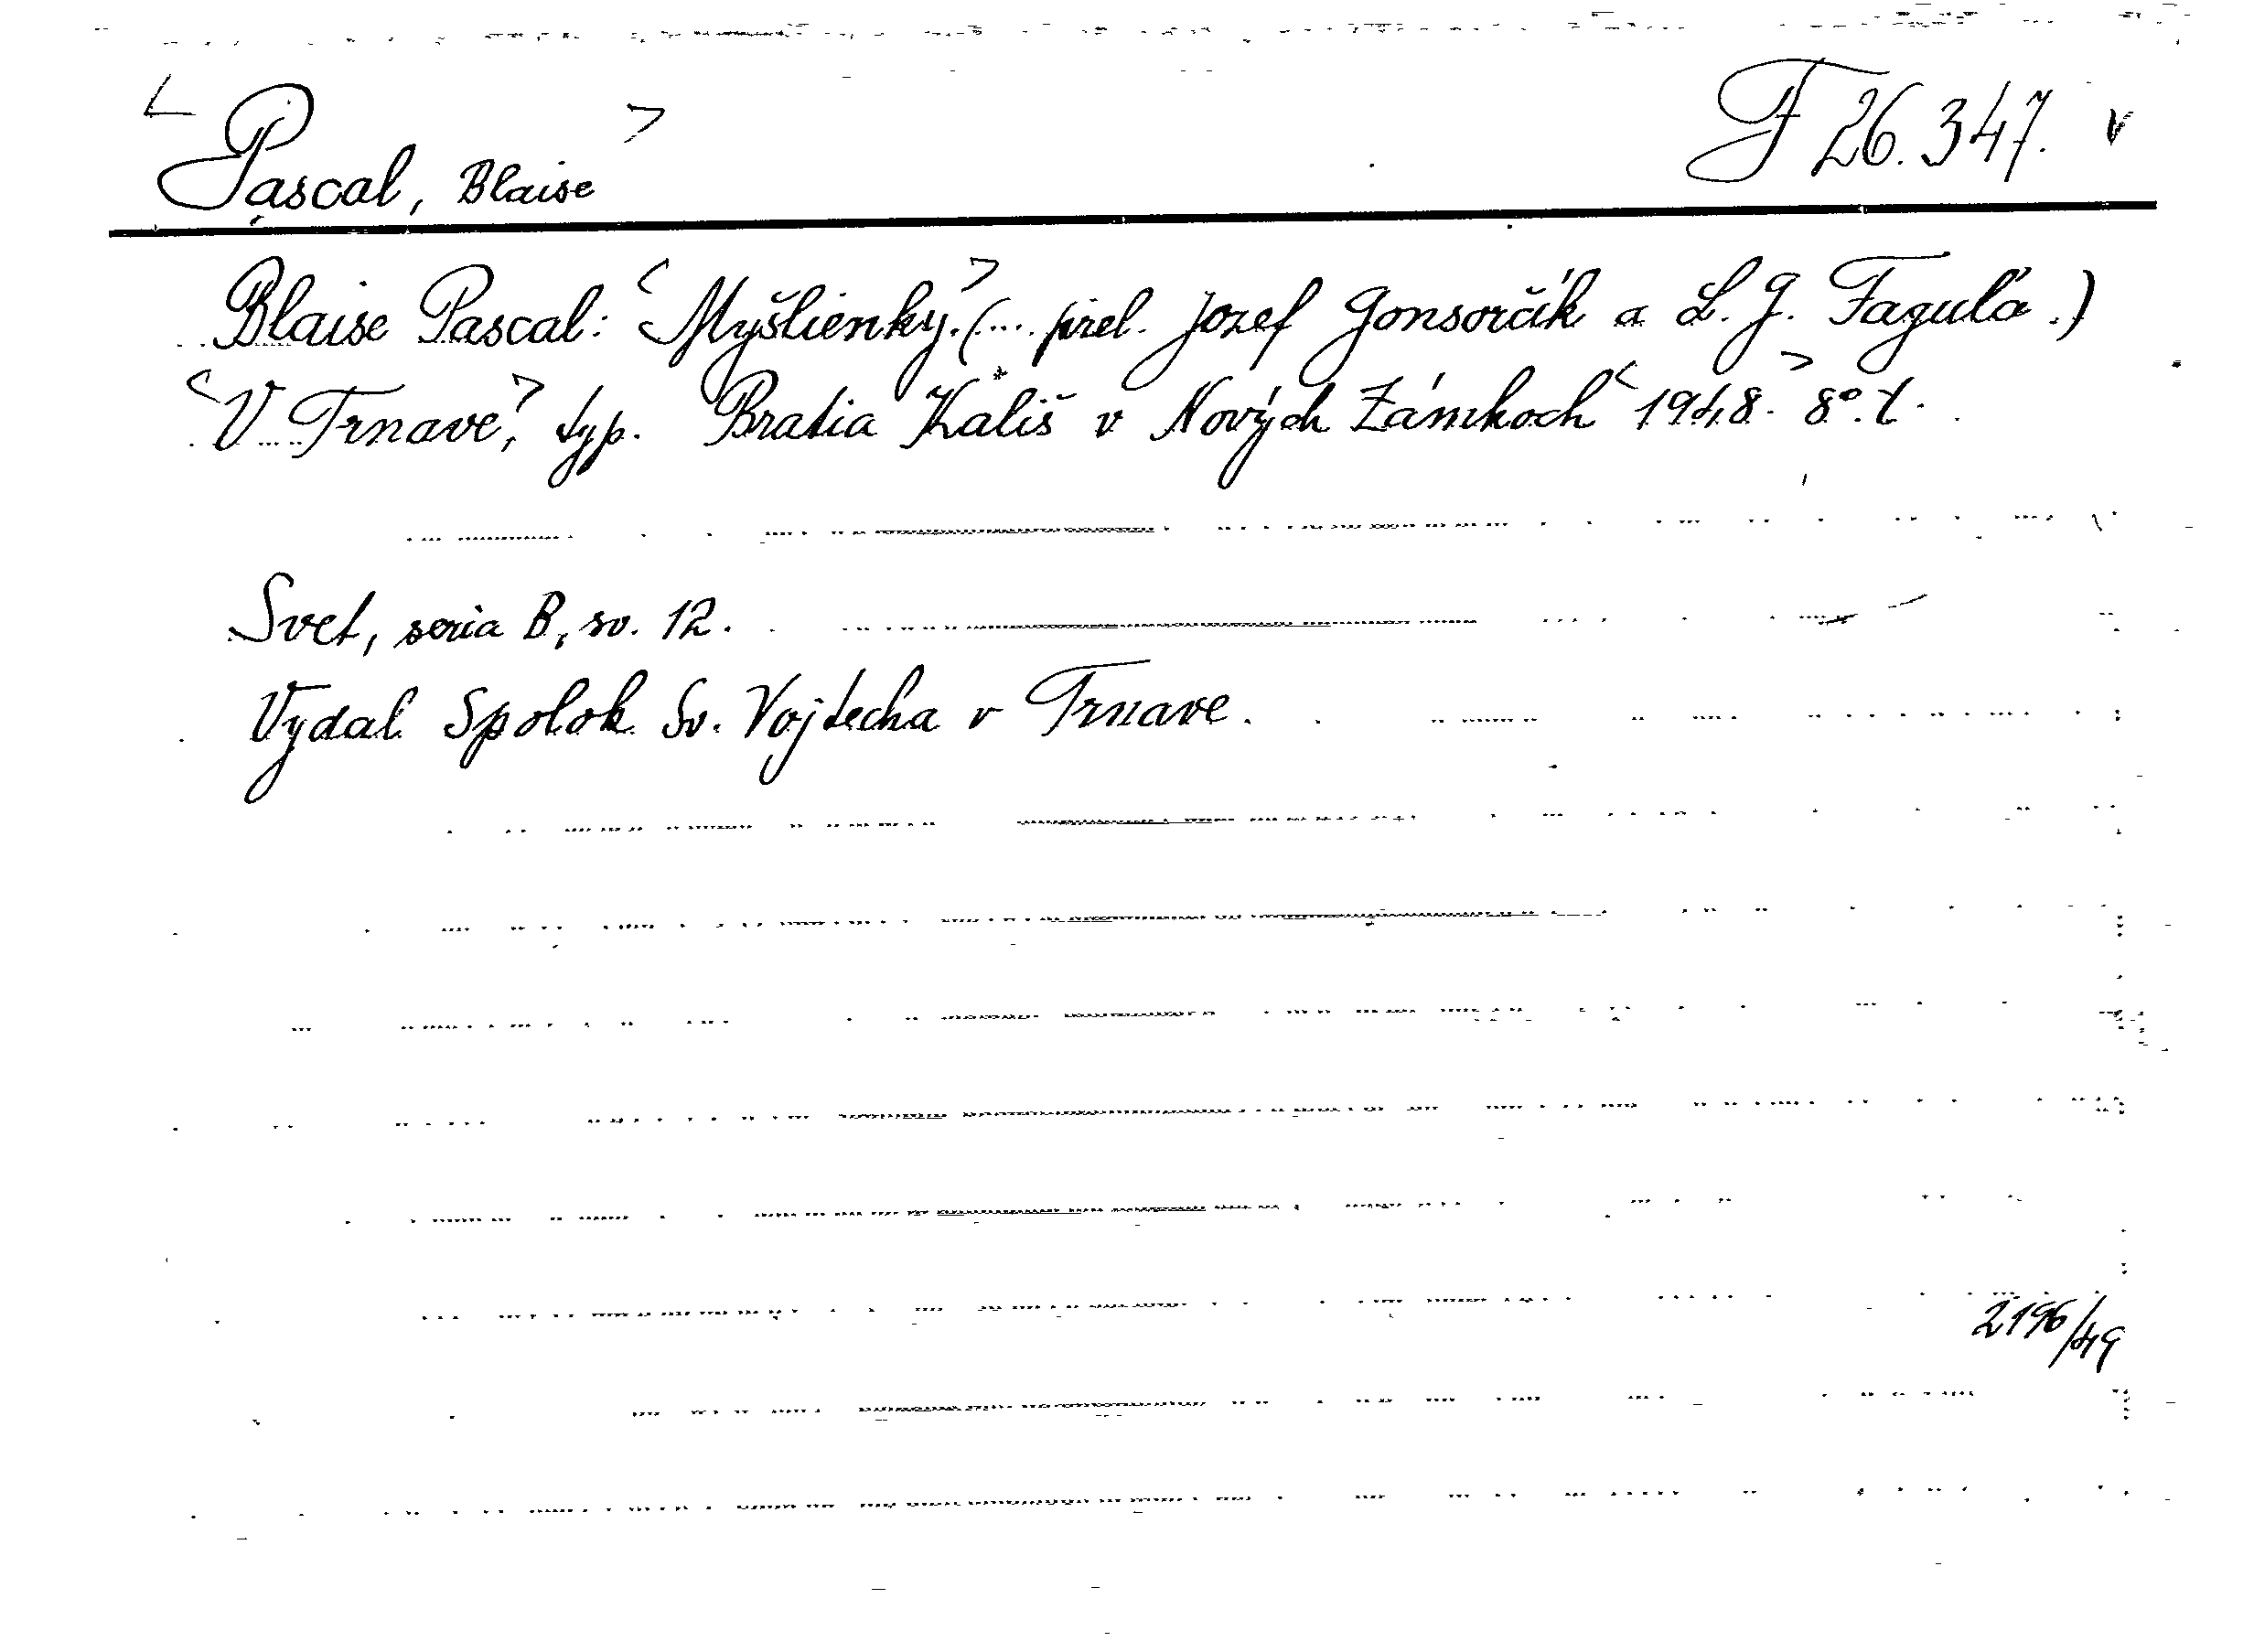 < Pascal, Blaise > F 26.347. v
Blaise Pascal: <Myšlienky.> (.... prel. Jozef Gonsorčík a L. G. Faguľa.)
<V Trnave,> typ. Bratia Kališ v Nových Zámkoch <1948.> 8°. t.
Svet, seria B, sv. 12.
Vydal Spolok Sv. Vojtecha v Trnave.
2196/49